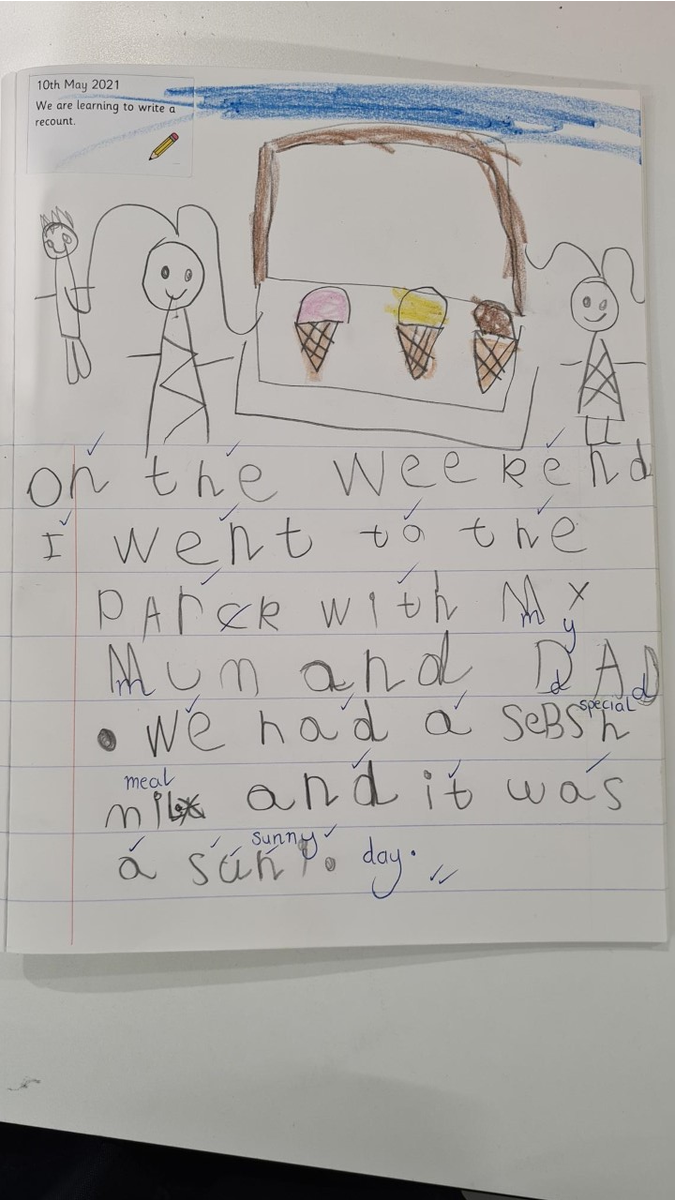 10th May 2021
We are learning to write a
recount.
on the weekend
I went to the
PArck with My
m y
Mum and DAD
m d d
special
• we had a SeBSh
meal
milk and it was
sunny
a suni. day.